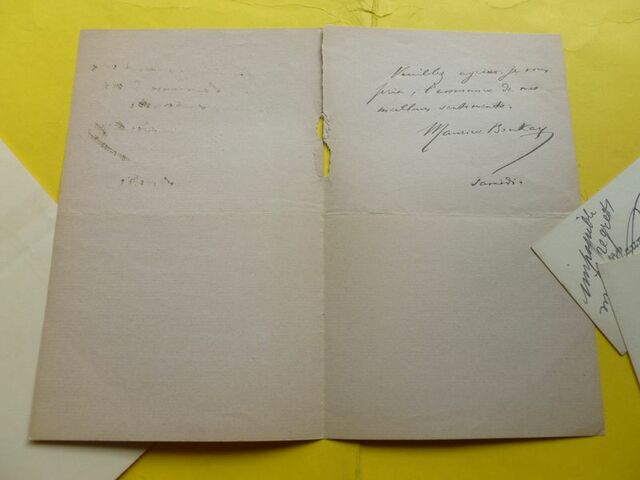 Veuillez agréer, je vous
prie, l'assurance de mes
meilleurs sentiments.
Maurice Boukay
samedi.
impossible
regrets